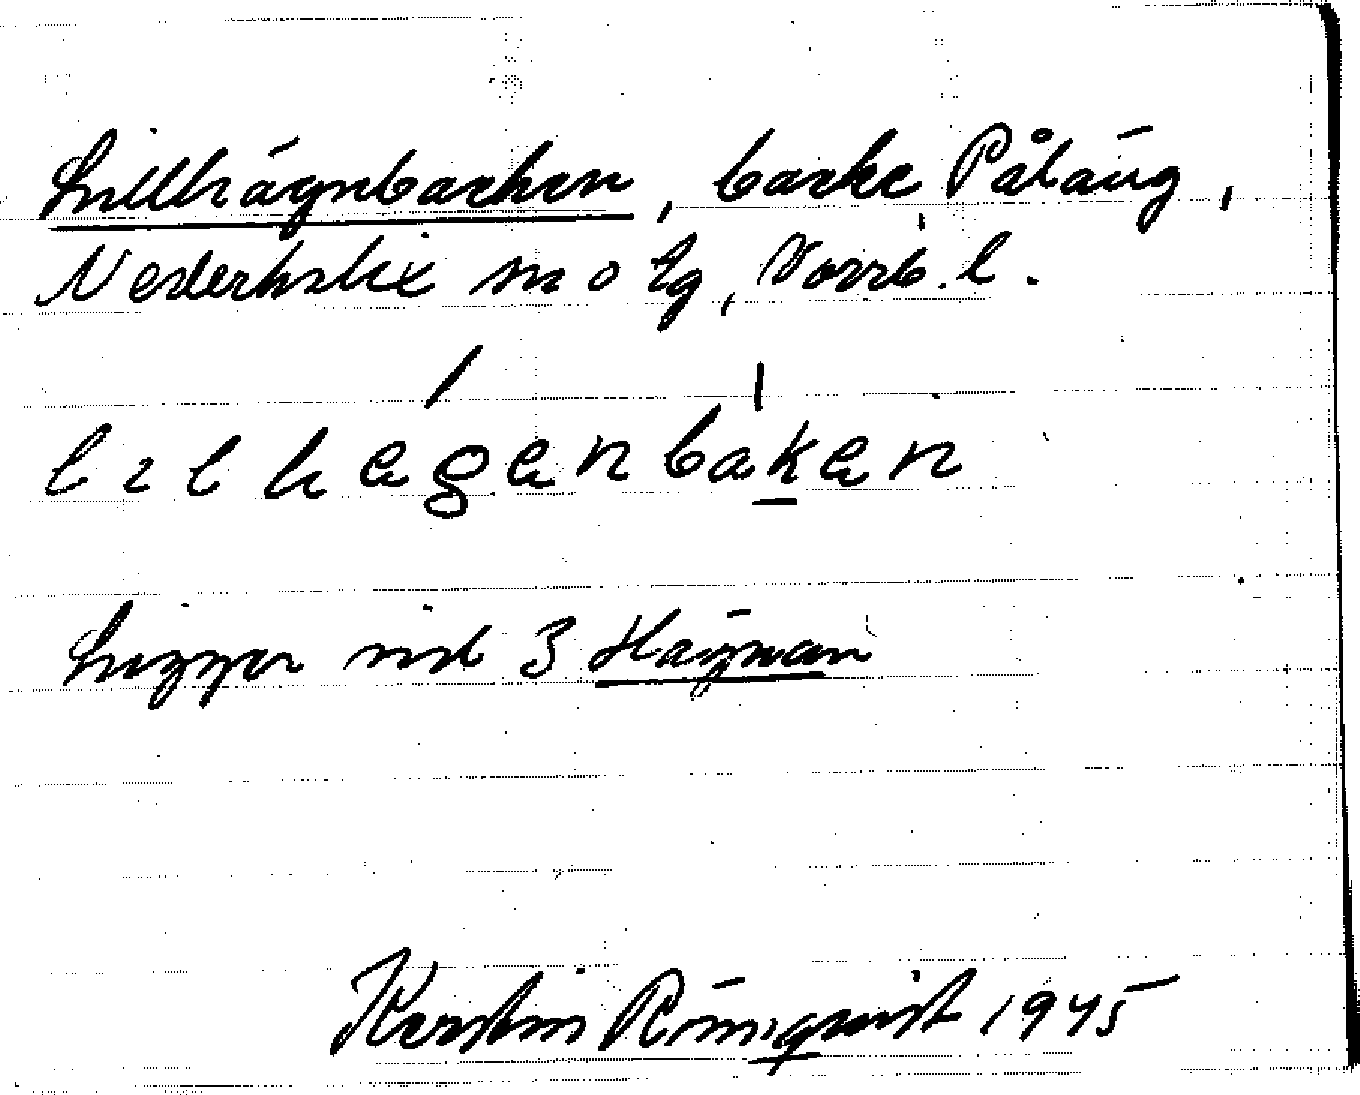 Lillhägnbacken, backe Påläng,
Nederkalix sn o tg, Norrb. l.
lılhegenbaken
Ligger vid 3 Hägnan
Kerstin Rönnqvist 1945